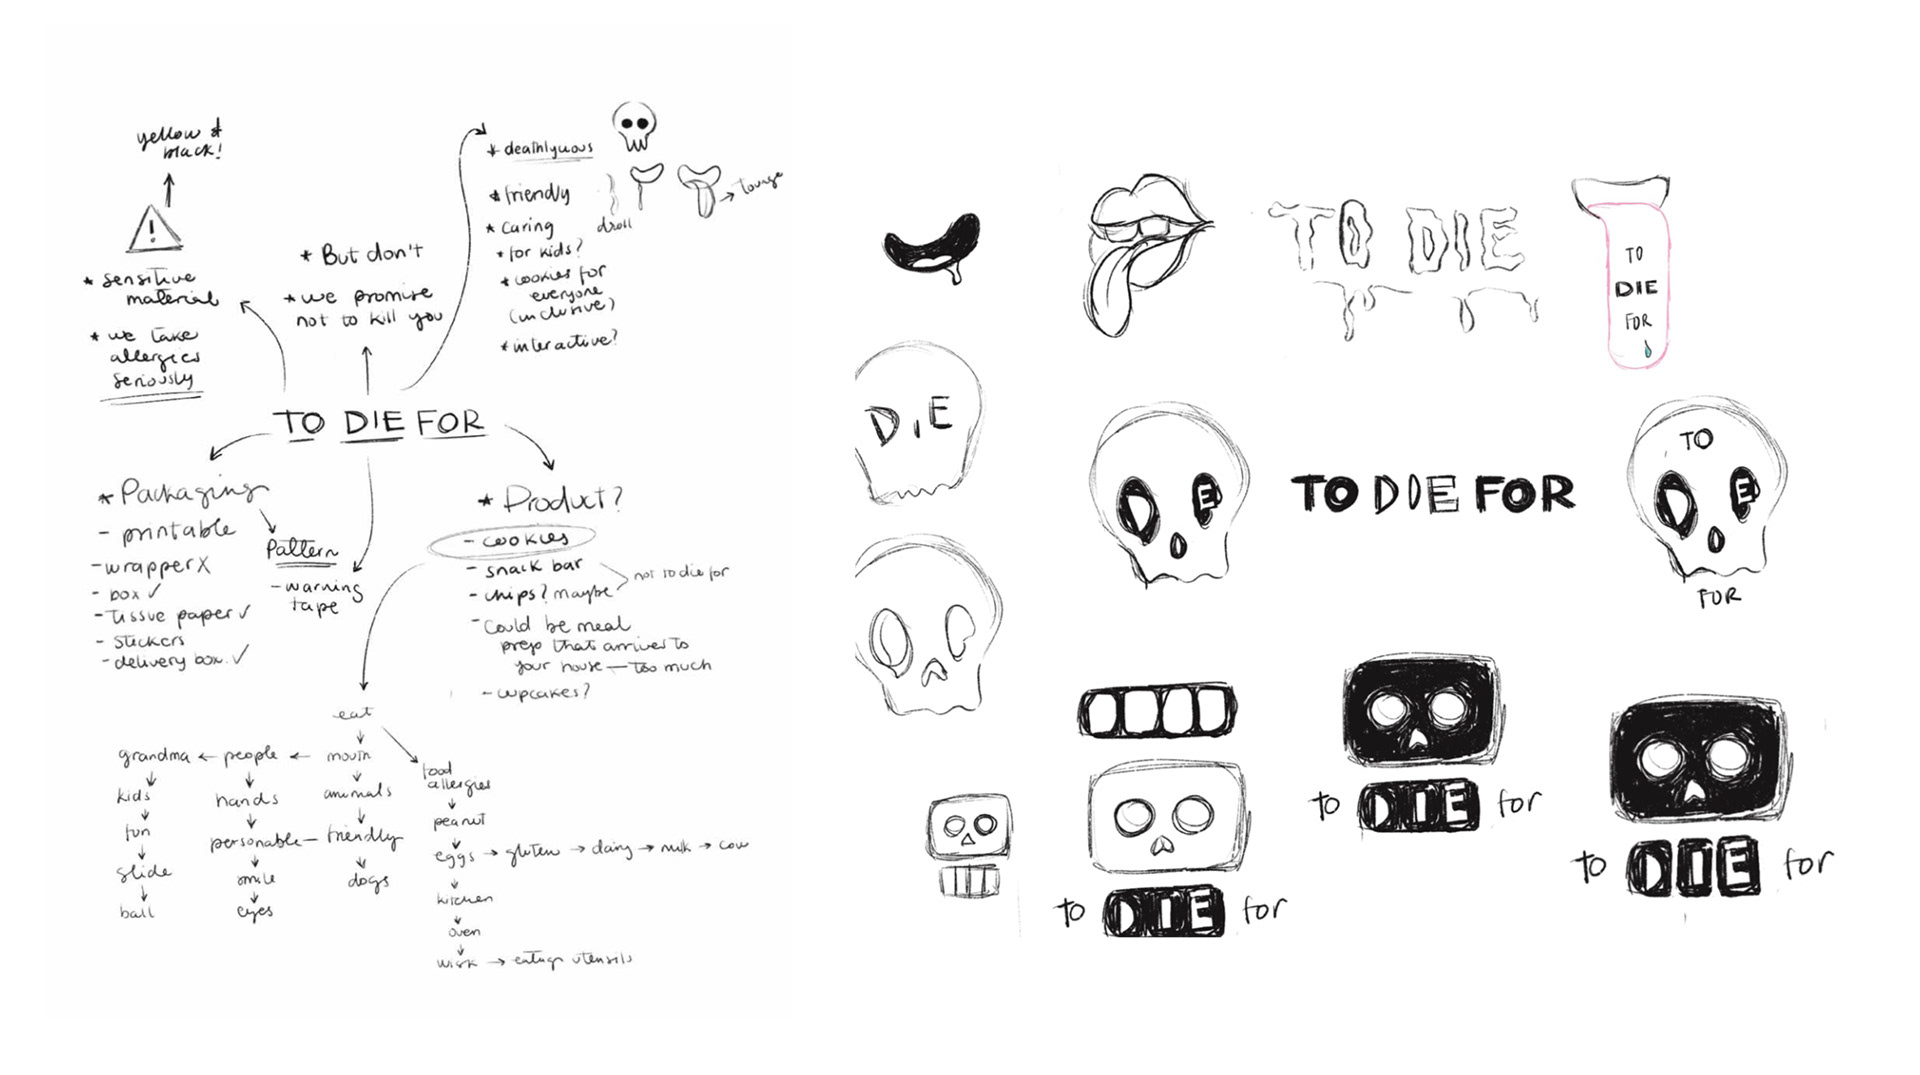 yellow &
black!
* sensitive
material
* we take
allergies
seriously
* But don't
* we promise
not to kill you
* deathlyuous
* friendly
* caring
* for kids?
* cookies for
everyone
(inclusive)
* interactive?
droll
→ tounge
TO DIE FOR
* Packaging
- printable
- wrapper X
- box ✓
- Tissue paper ✓
- stickers
- delivery box ✓
Pattern
- warning
tape
* Product?
- cookies
- snack bar
- chips? maybe
not to die for
- Could be meal
prep that arrives to
your house — too much
- cupcakes?
eat
grandma ← people ← mouth
kids
fun
slide
ball
hands
personable — friendly
smile
eyes
animals
dogs
food
allergies
peanut
eggs → gluten → dairy → milk → cow
kitchen
oven
wisk → eating utensils
TO DIE
TO
DIE
FOR
DIE
D E
TO DIE FOR
TO
D E
FOR
to DIE for
to DIE for
to DIE for